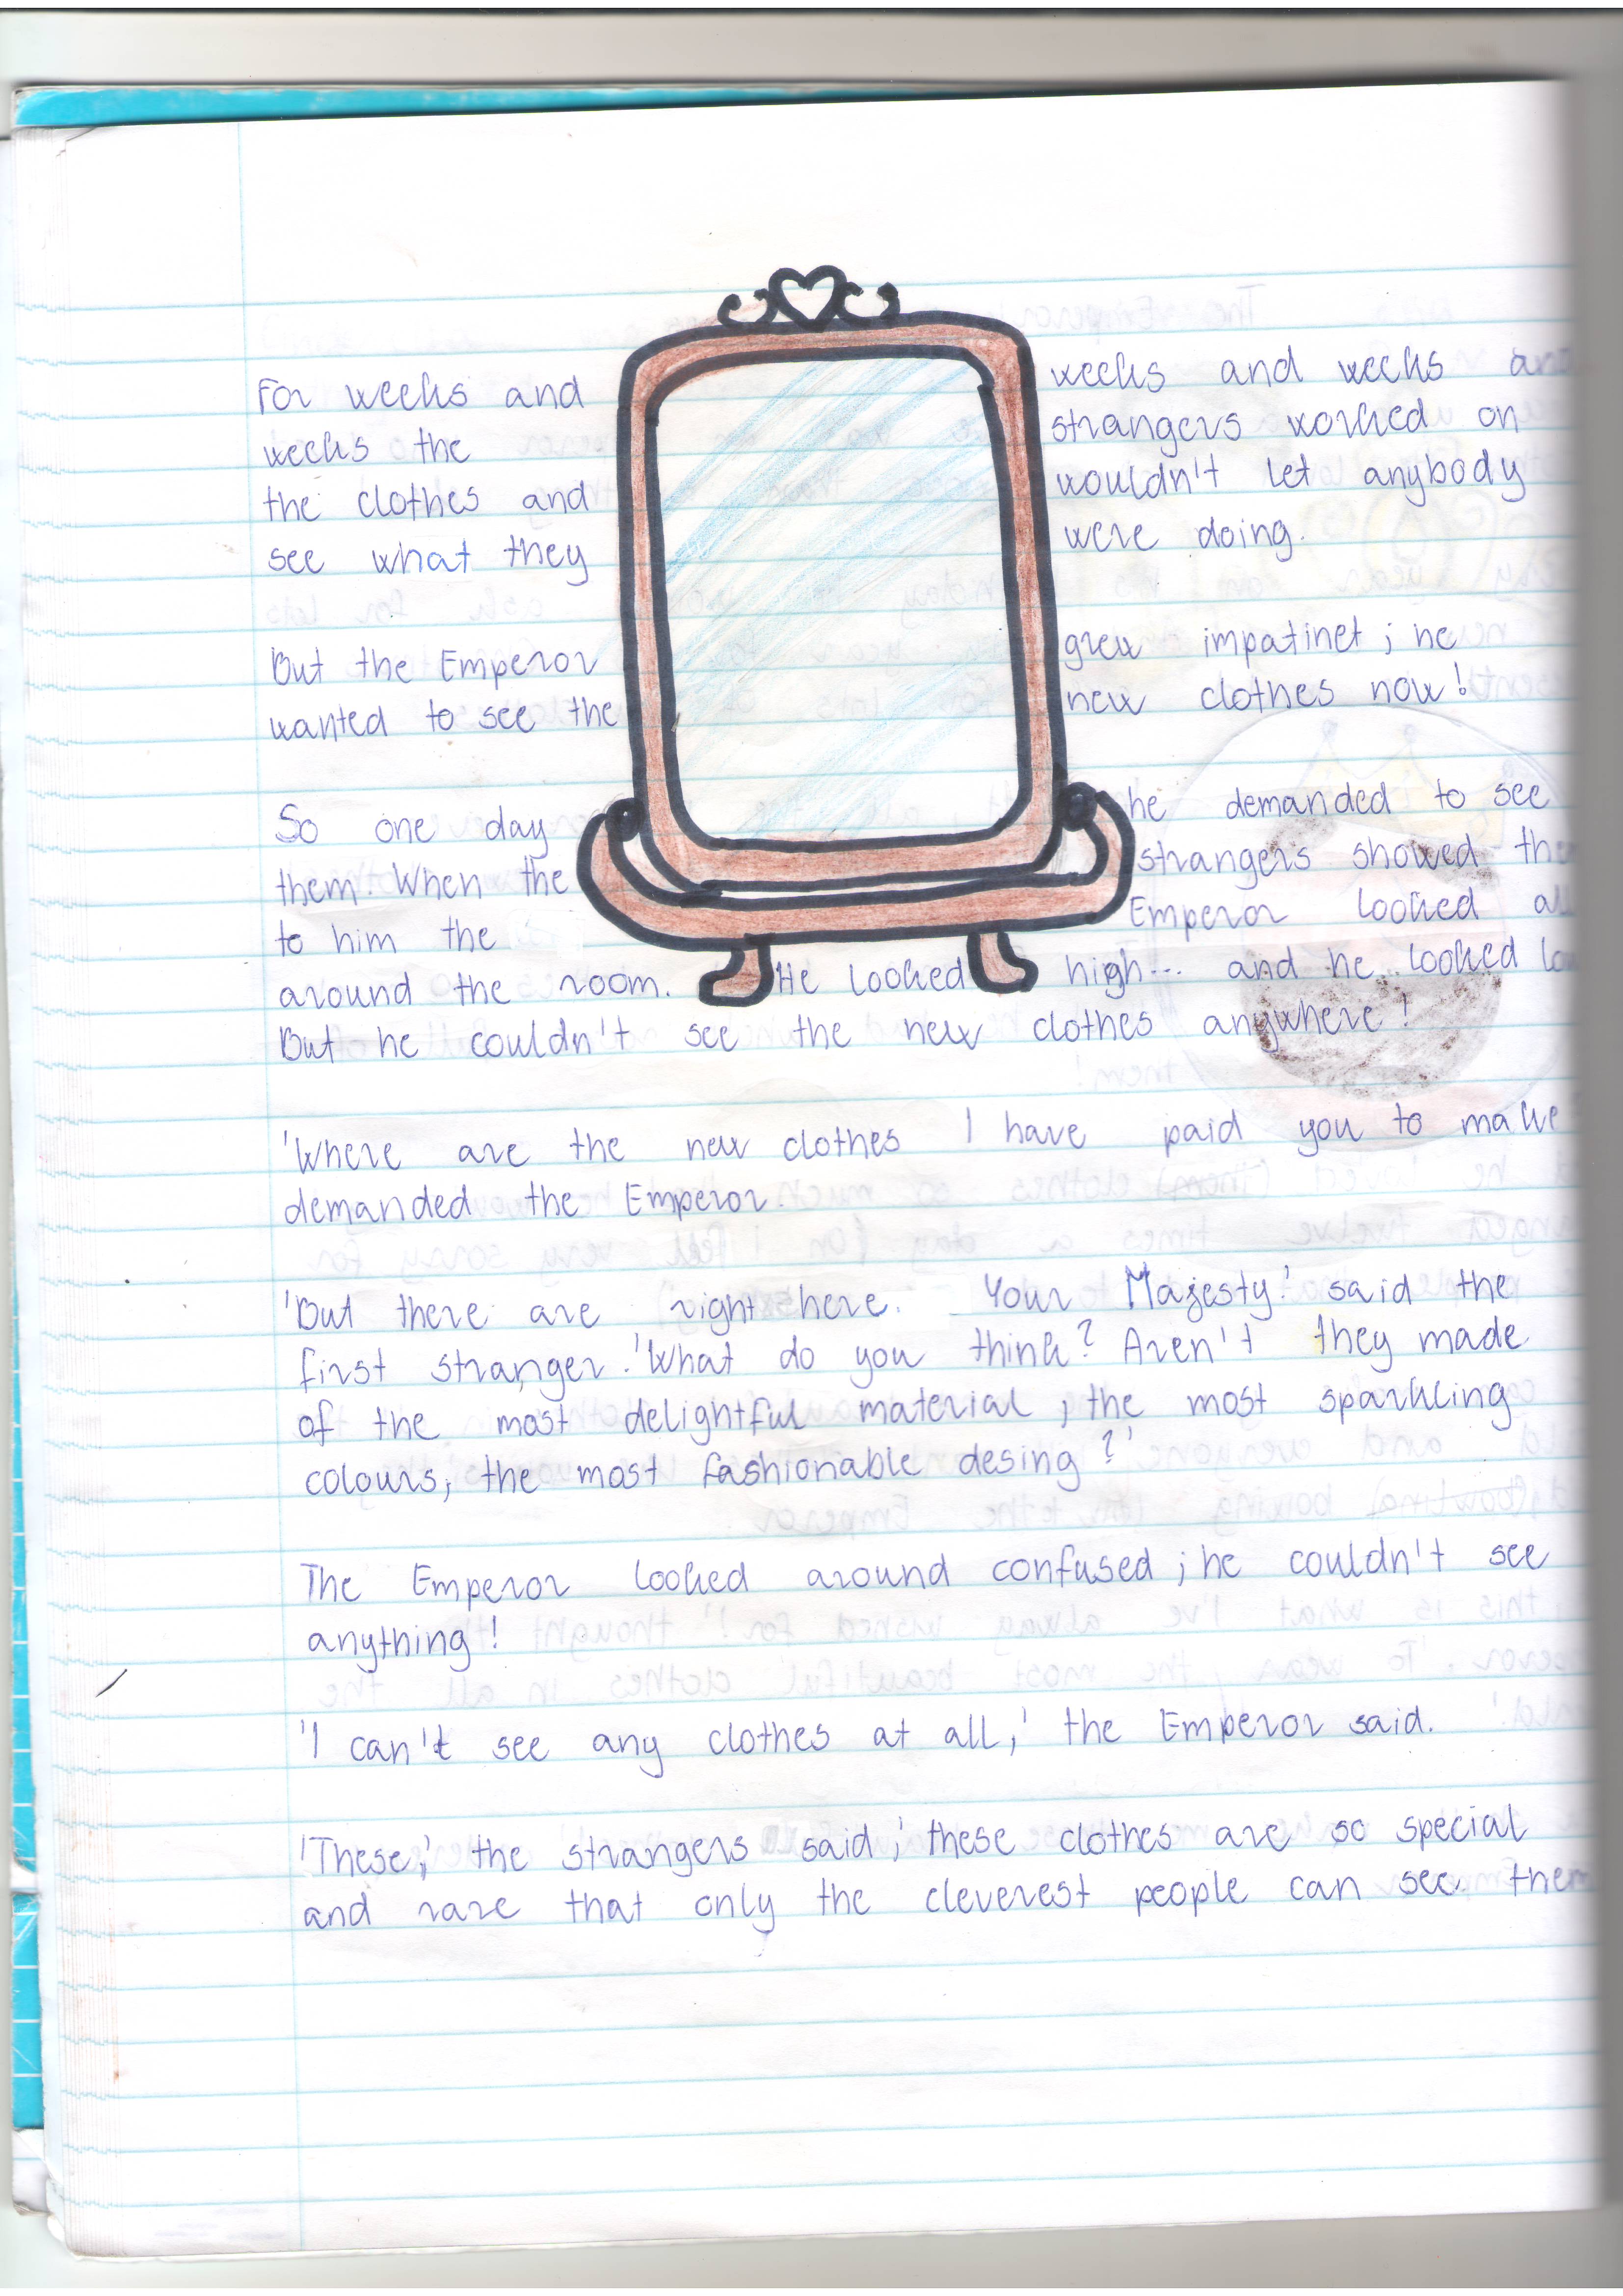 For weeks and weeks and weeks and
weeks the strangers worked on
the clothes and wouldn't let anybody
see what they were doing.
But the Emperor grew impatinet ; he
wanted to see the new clothes now!
So one day he demanded to see
them. When the strangers showed
to him the Emperor looked
around the room. He looked high... and he looked
But he couldn't see the new clothes anywhere!
'Where are the new clothes I have paid you to make
demanded the Emperor.
'But there are right here. Your Majesty.' said the
first stranger. 'What do you think? Aren't they made
of the most delightful material, the most sparkling
colours, the most fashionable desing?'
The Emperor looked around confused ; he couldn't see
anything!
'I can't see any clothes at all,' the Emperor said.
'These,' the strangers said, 'these clothes are so special
and rare that only the cleverest people can see them